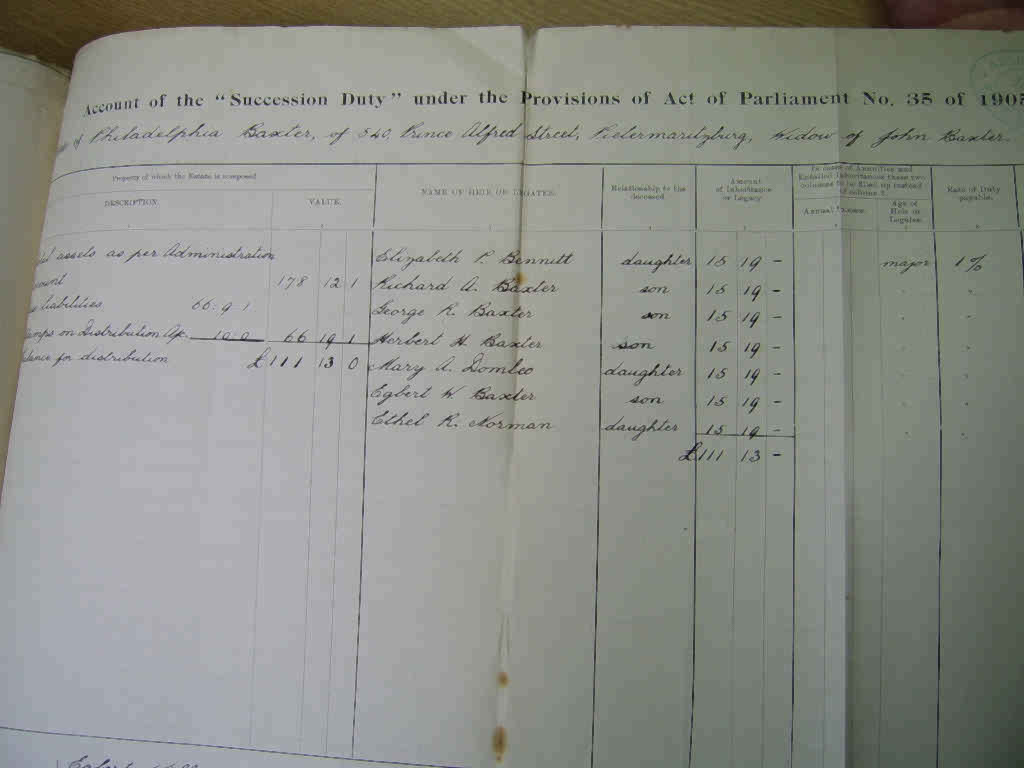 Account of the "Succession Duty" under the Provisions of Act of Parliament No. 35 of 1905
of Philadelphia Baxter, of 540, Prince Alfred Street, Pietermaritzburg, Widow of John Baxter.
Property of which the Estate is composed
DESCRIPTION
VALUE.
NAME OF HEIR OR LEGATEE.
Relationship to the deceased.
Amount of Inheritance or Legacy
In case of Annuities and Entailed Inheritances these two columns to be filled up instead of column 5.
Annual Income.
Age of Heir or Legatee.
Rate of Duty payable.
assets as per Administration
178 12 1
liabilities 66 . 9 . 1
on Distribution A/c. 10 . 0 66 19 1
for distribution £111 13 0
Elizabeth P. Bennitt daughter 15 19 - major 1%
Richard A. Baxter son 15 19 - " "
George R. Baxter son 15 19 - " "
Herbert H. Baxter son 15 19 - " "
Mary A. daughter 15 19 - " "
Egbert W. Baxter son 15 19 - " "
Ethel R. Norman daughter 15 19 - " "
£111 13 -
Egbert